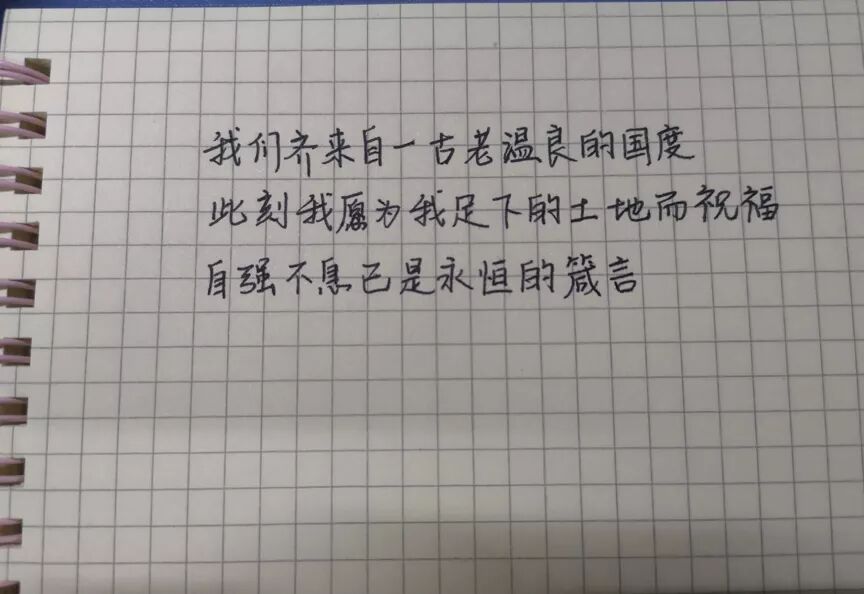 我们齐来自一古老温良的国度
此刻我愿为我足下的土地而祝福
自强不息已是永恒的箴言